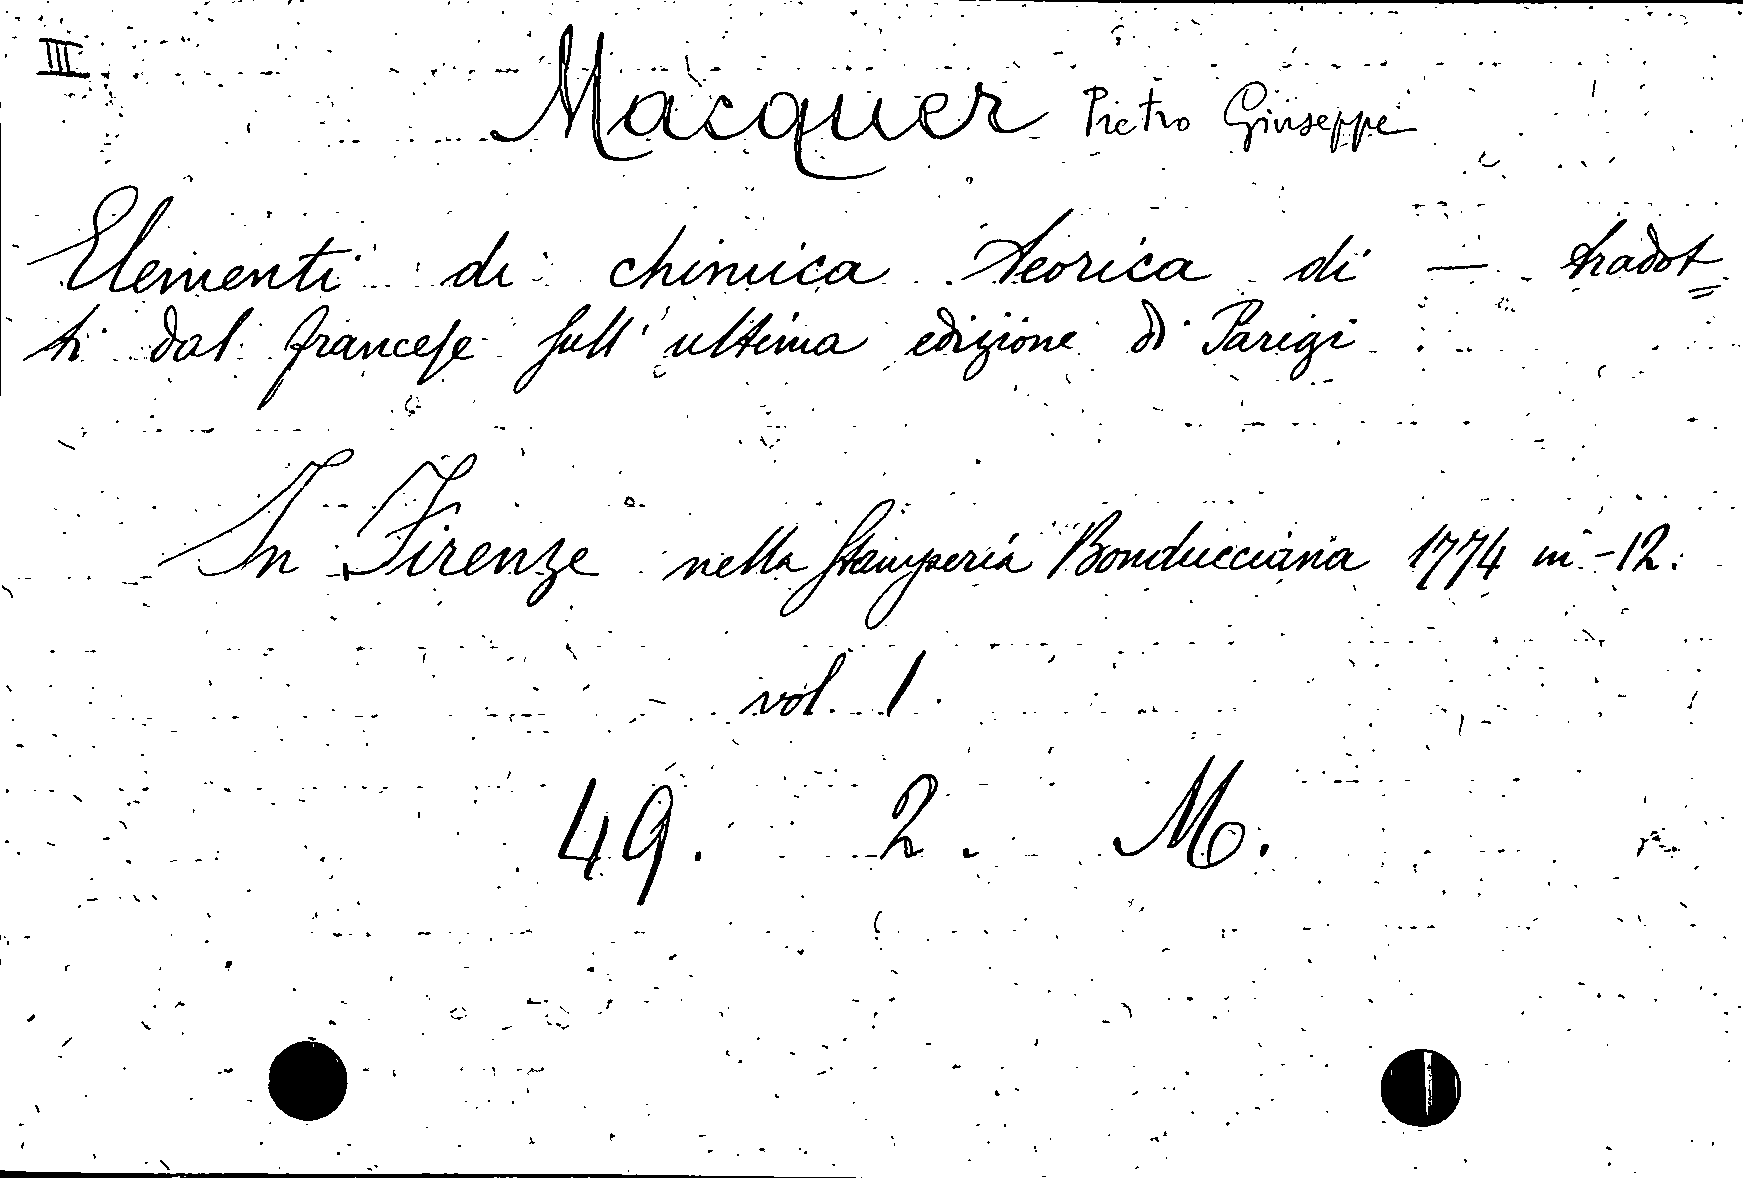 III
Macquer Pietro Giuseppe
Elementi di chimica teorica di — tradot=
ti dal franceſe ſull' ultima edizione di Parigi
In Firenze nella ſtamperia Bonducciana 1774 in-12.
vol. 1.
49. 2. M.